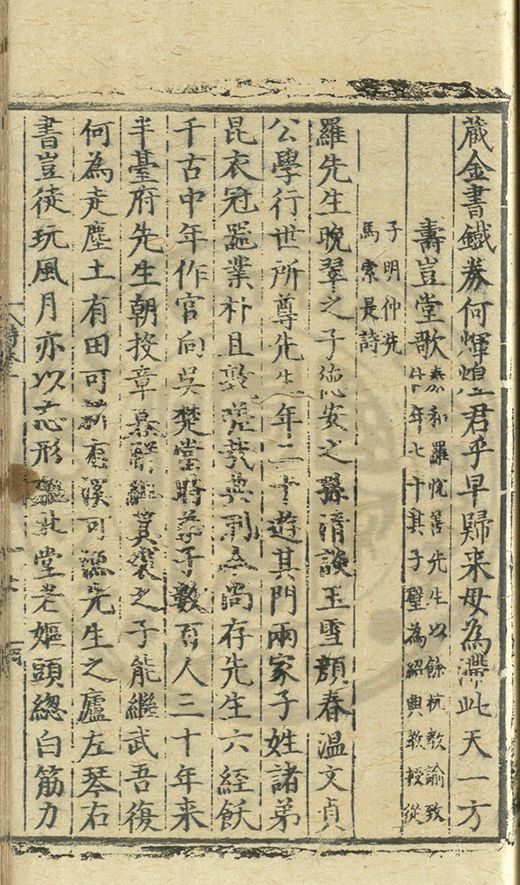 藏金書鐵券何輝煌君乎早歸来毋為滯此天一方
壽豈堂歌泰和羅悅善先生以餘杭教諭致
仕年七十其子璧為紹興教授從
子明仲先
馬索是詩
羅先生晚翠之子德安之孫清談玉雪顔春温文貞
公學行世所尊先生年二十遊其門兩家子姓諸弟
昆衣冠噐業朴且敦茫茫典刑今尚存先生六經飫
千古中年作官向吳楚堂時弟子數百人三十年来
半臺府先生朝投章暮辭組賁褒之子能繼武吾復
何為走塵土有田可耕有溪可漁先生之廬左琴右
書豈徒玩風月亦以忘形堂老嫗頭總白筋力